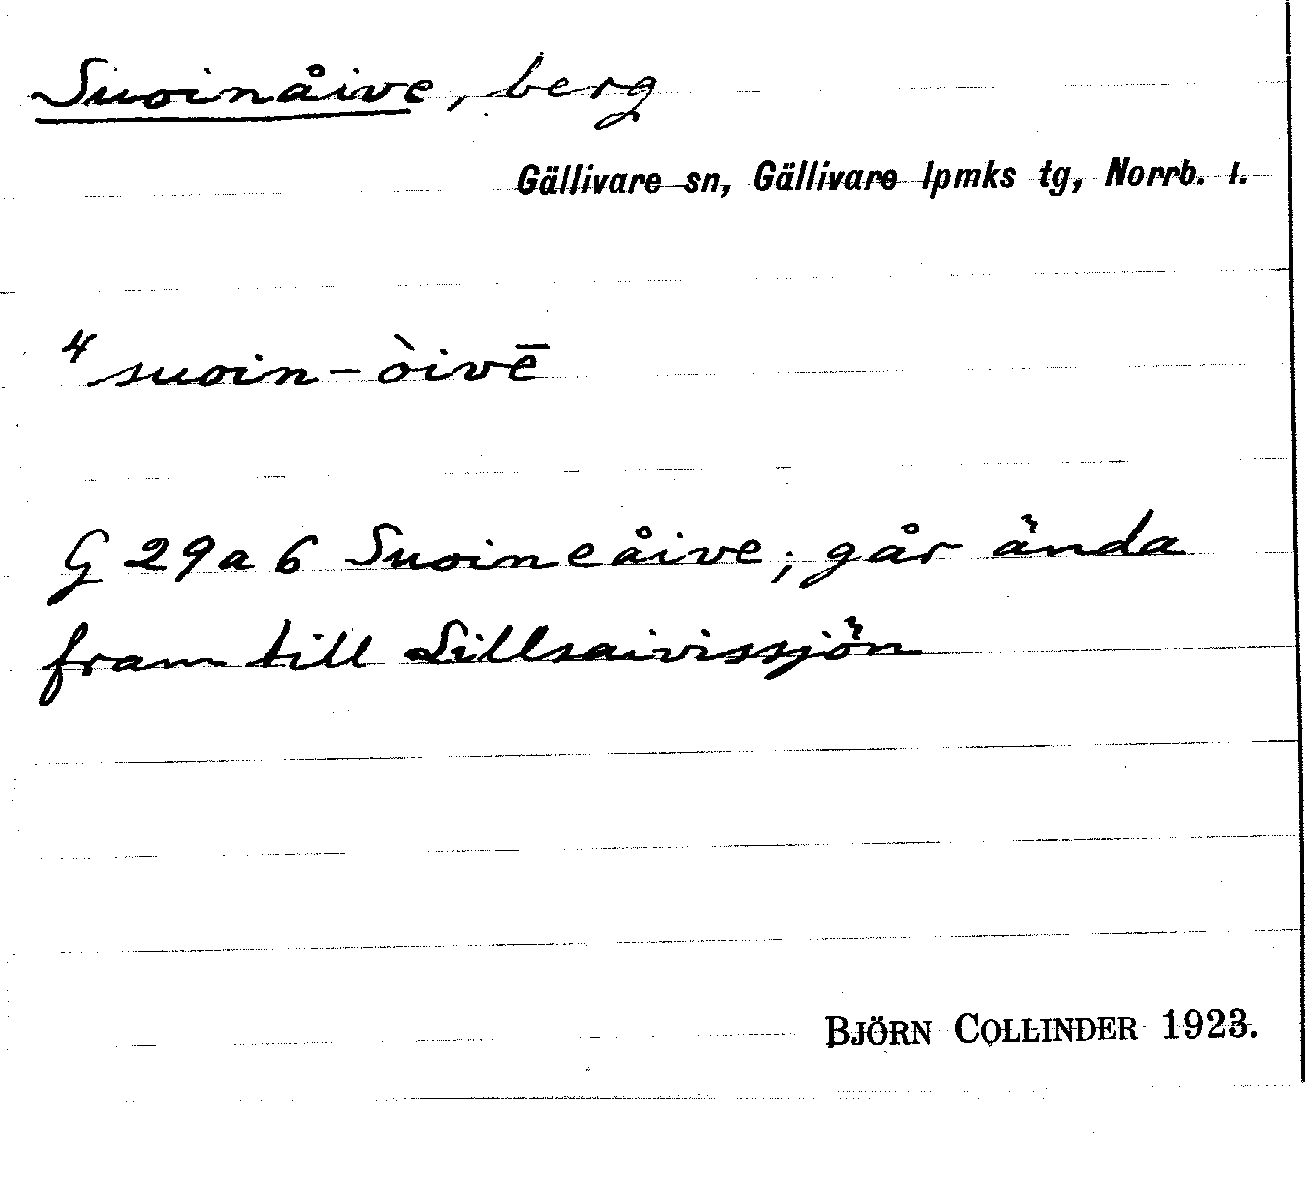 Suoinåive, berg
Gällivare sn, Gällivare lpmks tg, Norrb. l.
4 suoin-òivē
G 29a 6 Suoineåive; går ända
fram till Lillsaivissjön
BJÖRN COLLINDER 1923.